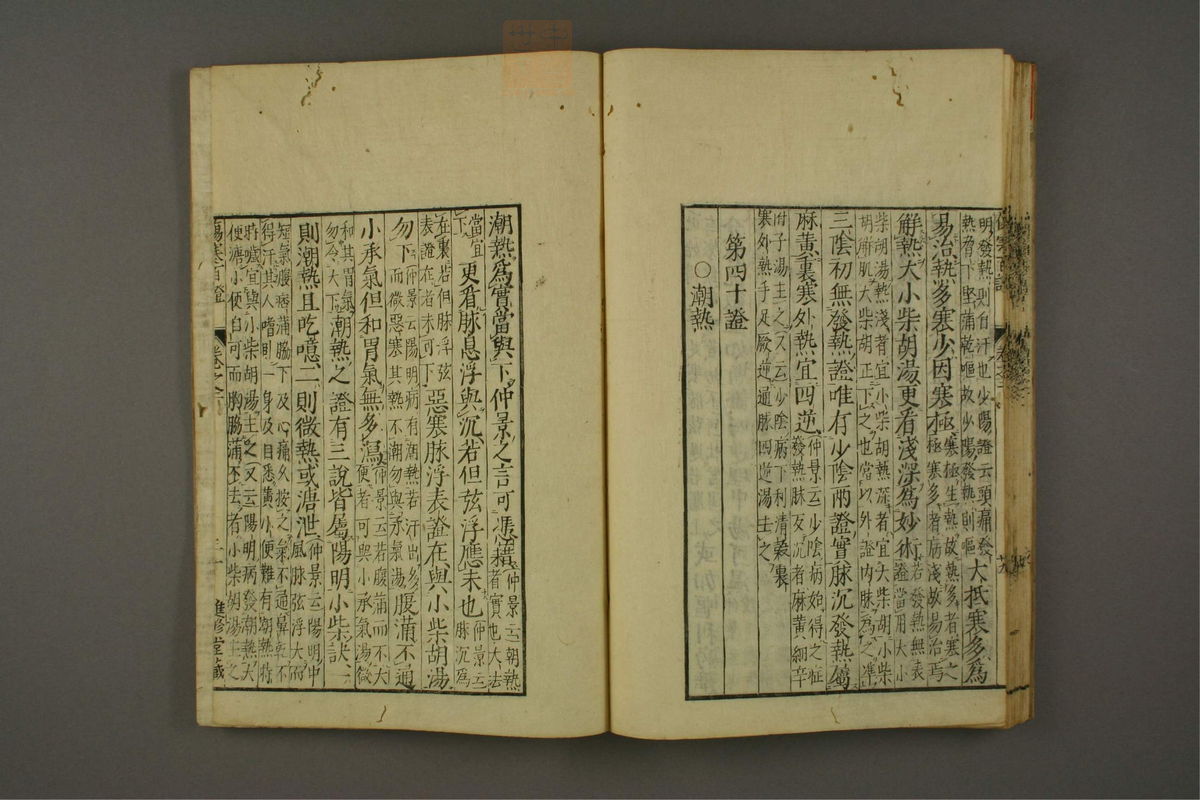 明發熱則自汗也少陽證云頭痛發
熱脅下堅滿乾嘔故少陽發熱則嘔
大抵寒多爲
易治熱多寒少因寒極
寒極生熱故熱多者寒之
極寒多者病淺故易治焉
解熱大小柴胡湯更看淺深爲妙術
若發熱無表
證當用大小
柴胡湯熱淺者宜小柴胡熱深者宜大柴胡小柴
胡解肌大柴胡正下之也當以外證内脉爲之準
三陰初無發熱證唯有少陰兩證實脉沉發熱屬
麻黃裏寒外熱宜四逆
仲景云少陰病始得之症
發熱脉反沉者麻黃細辛
附子湯主之又云少陰病下利清穀裏
寒外熱手足厥逆通脉四逆湯主之
第四十證
○潮熱
潮熱爲實當與下仲景之言可憑藉
仲景云潮熱
者實也大法
當宜
下
更看脉息浮與沉若但弦浮應未也
仲景云
脉沉爲
在裏若但脉浮弦
表證在者未可下
惡寒脉浮表證在與小柴胡湯
勿下
仲景云陽明病有潮熱若汗出多
而微惡寒其熱不潮勿與承氣湯
腹滿不通
小承氣但和胃氣無多瀉
仲景云若腹滿而不大
便者可與小承氣湯微
和其胃氣
勿令大下
潮熱之證有三說皆屬陽明小柴訣一
則潮熱且吃噫二則微熱或溏泄
仲景云陽明中
風脉弦浮大府
短氣脹病滿脇下及心痛久按之氣不通鼻乾不
得汗其人嗜卧一身及目悉黃小便難有潮熱時
時噦宜與小柴胡湯主之又云陽明病發潮熱大
便溏小便自可而胸脇滿不去者小柴胡湯主之
傷寒百證
卷之三
進修堂藏